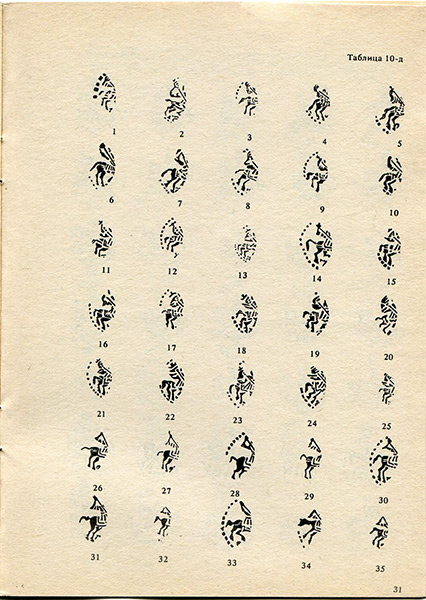 Таблица 10-д
1 2 3 4 5
6 7 8 9 10
11 12 13 14 15
16 17 18 19 20
21 22 23 24 25
26 27 28 29 30
31 32 33 34 35
31